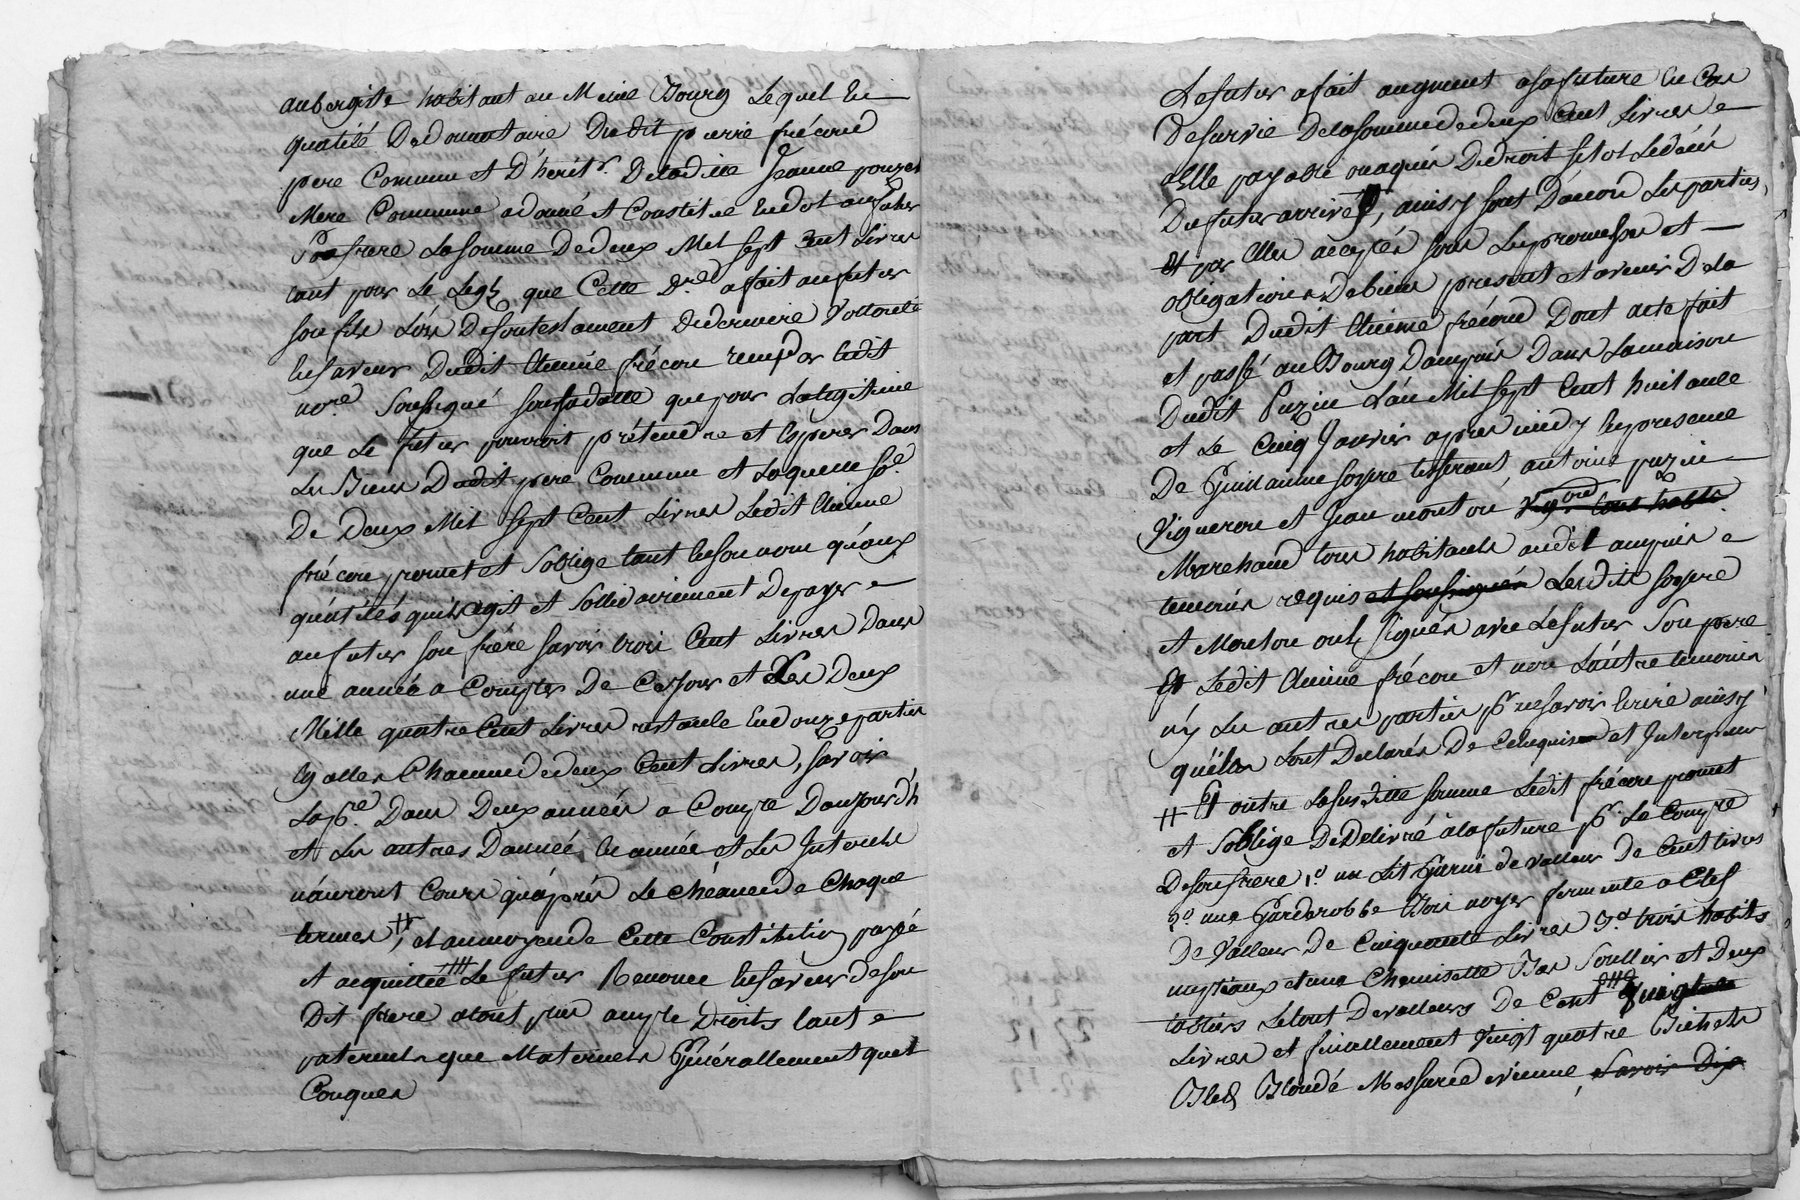 aubergiste habitant au Meme Bourg Lequel En
qualité De donnataire Dudit pierre frécon
pere Commun et D'herit.r Deladitte Jeanne pouzet
Mere Commune a donné et Constitué Endot au futur
Son frere La somme De deux Mil sept Cent Livres
tant pour Le Legs que Cette D.re a fait au futur
son fils Lors De son testament De derniere Vollonté
En faveur Dudit Etienne frécon reçu par Ledit
no.re Soussigné sous sa datte que pour La legitime
que Le futur pouvoit prétendre et Esperer Dans
Les Biens Dudit pere Commun et Laquelle so.e
De Deux Mil sept Cent Livres Ledit Etienne
frécon promet et S'oblige tant En son nom qu'aux
qualités qu'il agit et Sollidairement De payer
au futur son frére savoir trois Cent Livres Dans
une année a Compter De Ce Jour et Les Deux
Mille quatre Cent Livres restante En douze parties
Egalles Chacune de deux Cent Livres, savoir
La p.e Dans Deux années a Compte D'aujourd'h
et Les autres D'année En année et Les Interets
n'auront Cours qu'après Le Chéance de Chaque
termes, # et au moyen de Cette Constitution payée
et acquittée ### Le futur Renonce En faveur De son
Dit frere a tout plus ample Droits tant
paternels que Maternels Générallement quel
Conques
Le futur a fait augment a sa future En Cas
De survie De la somme de deux Cent Livres
a Elle payable ou a qui De droit sitot Le décès
Du futur arrivé, ainsy sont D'accord Les parties,
et par Elles accepté sous Les promesses et
obligations De biens present et avenir De la
part Dudit Etienne frécon Dont acte fait
et passé au Bourg D'ampuis Dans La maison
Dudit Puzin L'an Mil sept Cent huitante
et Le Cinq Janvier apres midy En presence
De Guillaume soypre tisserant, antoine puzin
Vigneron et Jean mouton Vig.ron tous habts
Marchand tous habitants audit ampuis
temoins requis et soussignés Lesdits soypre
et Mouton onts signés avec Le futur Son pere
Et Ledit Etienne frécon et non L'autre temoin
n'y Les autres parties p.r ne savoir Ecrire ainsy
qu'elles L'ont Declarés De Ce enquis et Interpellé
# Et outre La susditte somme Ledit frécon promet
et S'oblige De Delivré à la future p.r Le Compte
De son frere 1.o un Lit Garni de valleur De Cent livres
2.o une Garderobbe Bois noyer fermente a Clef
De Valleur De Cinquante Livres 3.o trois habits
nuptiaux et une Chemisette Bas Soulliers et Deux
tabliers Le tout De valleurs De Cent Vingt
Livres et finallement Vingt quatre Bichets
Bled Blondé Messure de vienne, savoir Dix